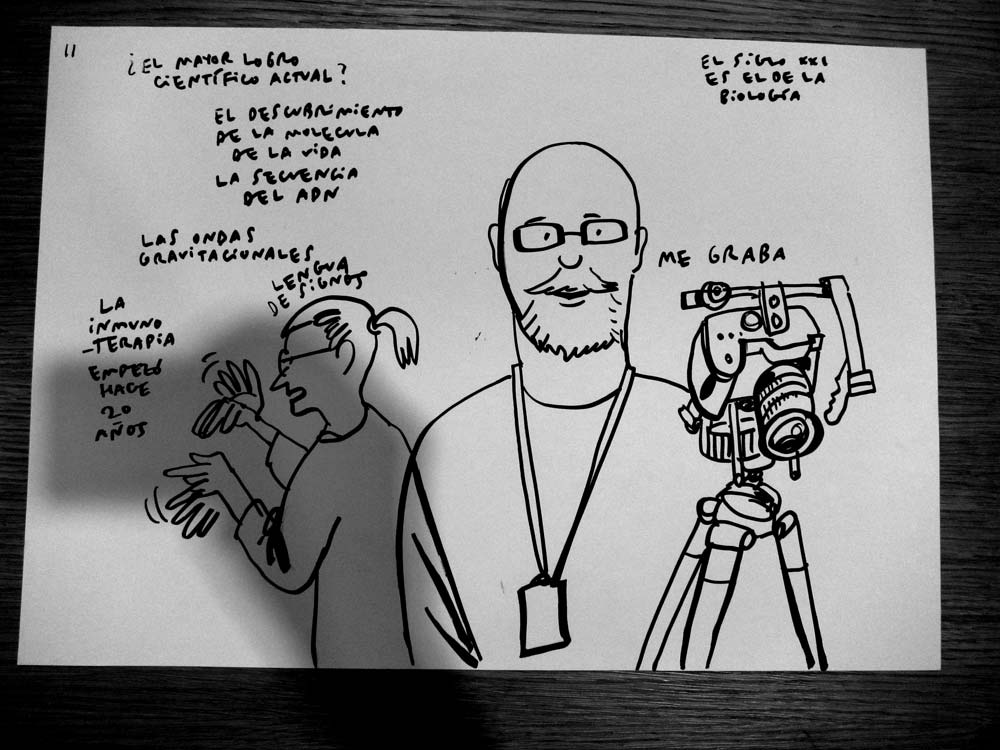 11
¿EL MAYOR LOGRO
CIENTÍFICO ACTUAL?
EL DESCUBRIMIENTO
DE LA MOLECULA
DE LA VIDA
LA SECUENCIA
DEL ADN
LAS ONDAS
GRAVITACIONALES
LENGUA
DE SIGNOS
LA
INMUNO
-TERAPIA
EMPEZÓ
HACE
20
AÑOS
EL SIGLO XXI
ES EL DE LA
BIOLOGÍA
ME GRABA